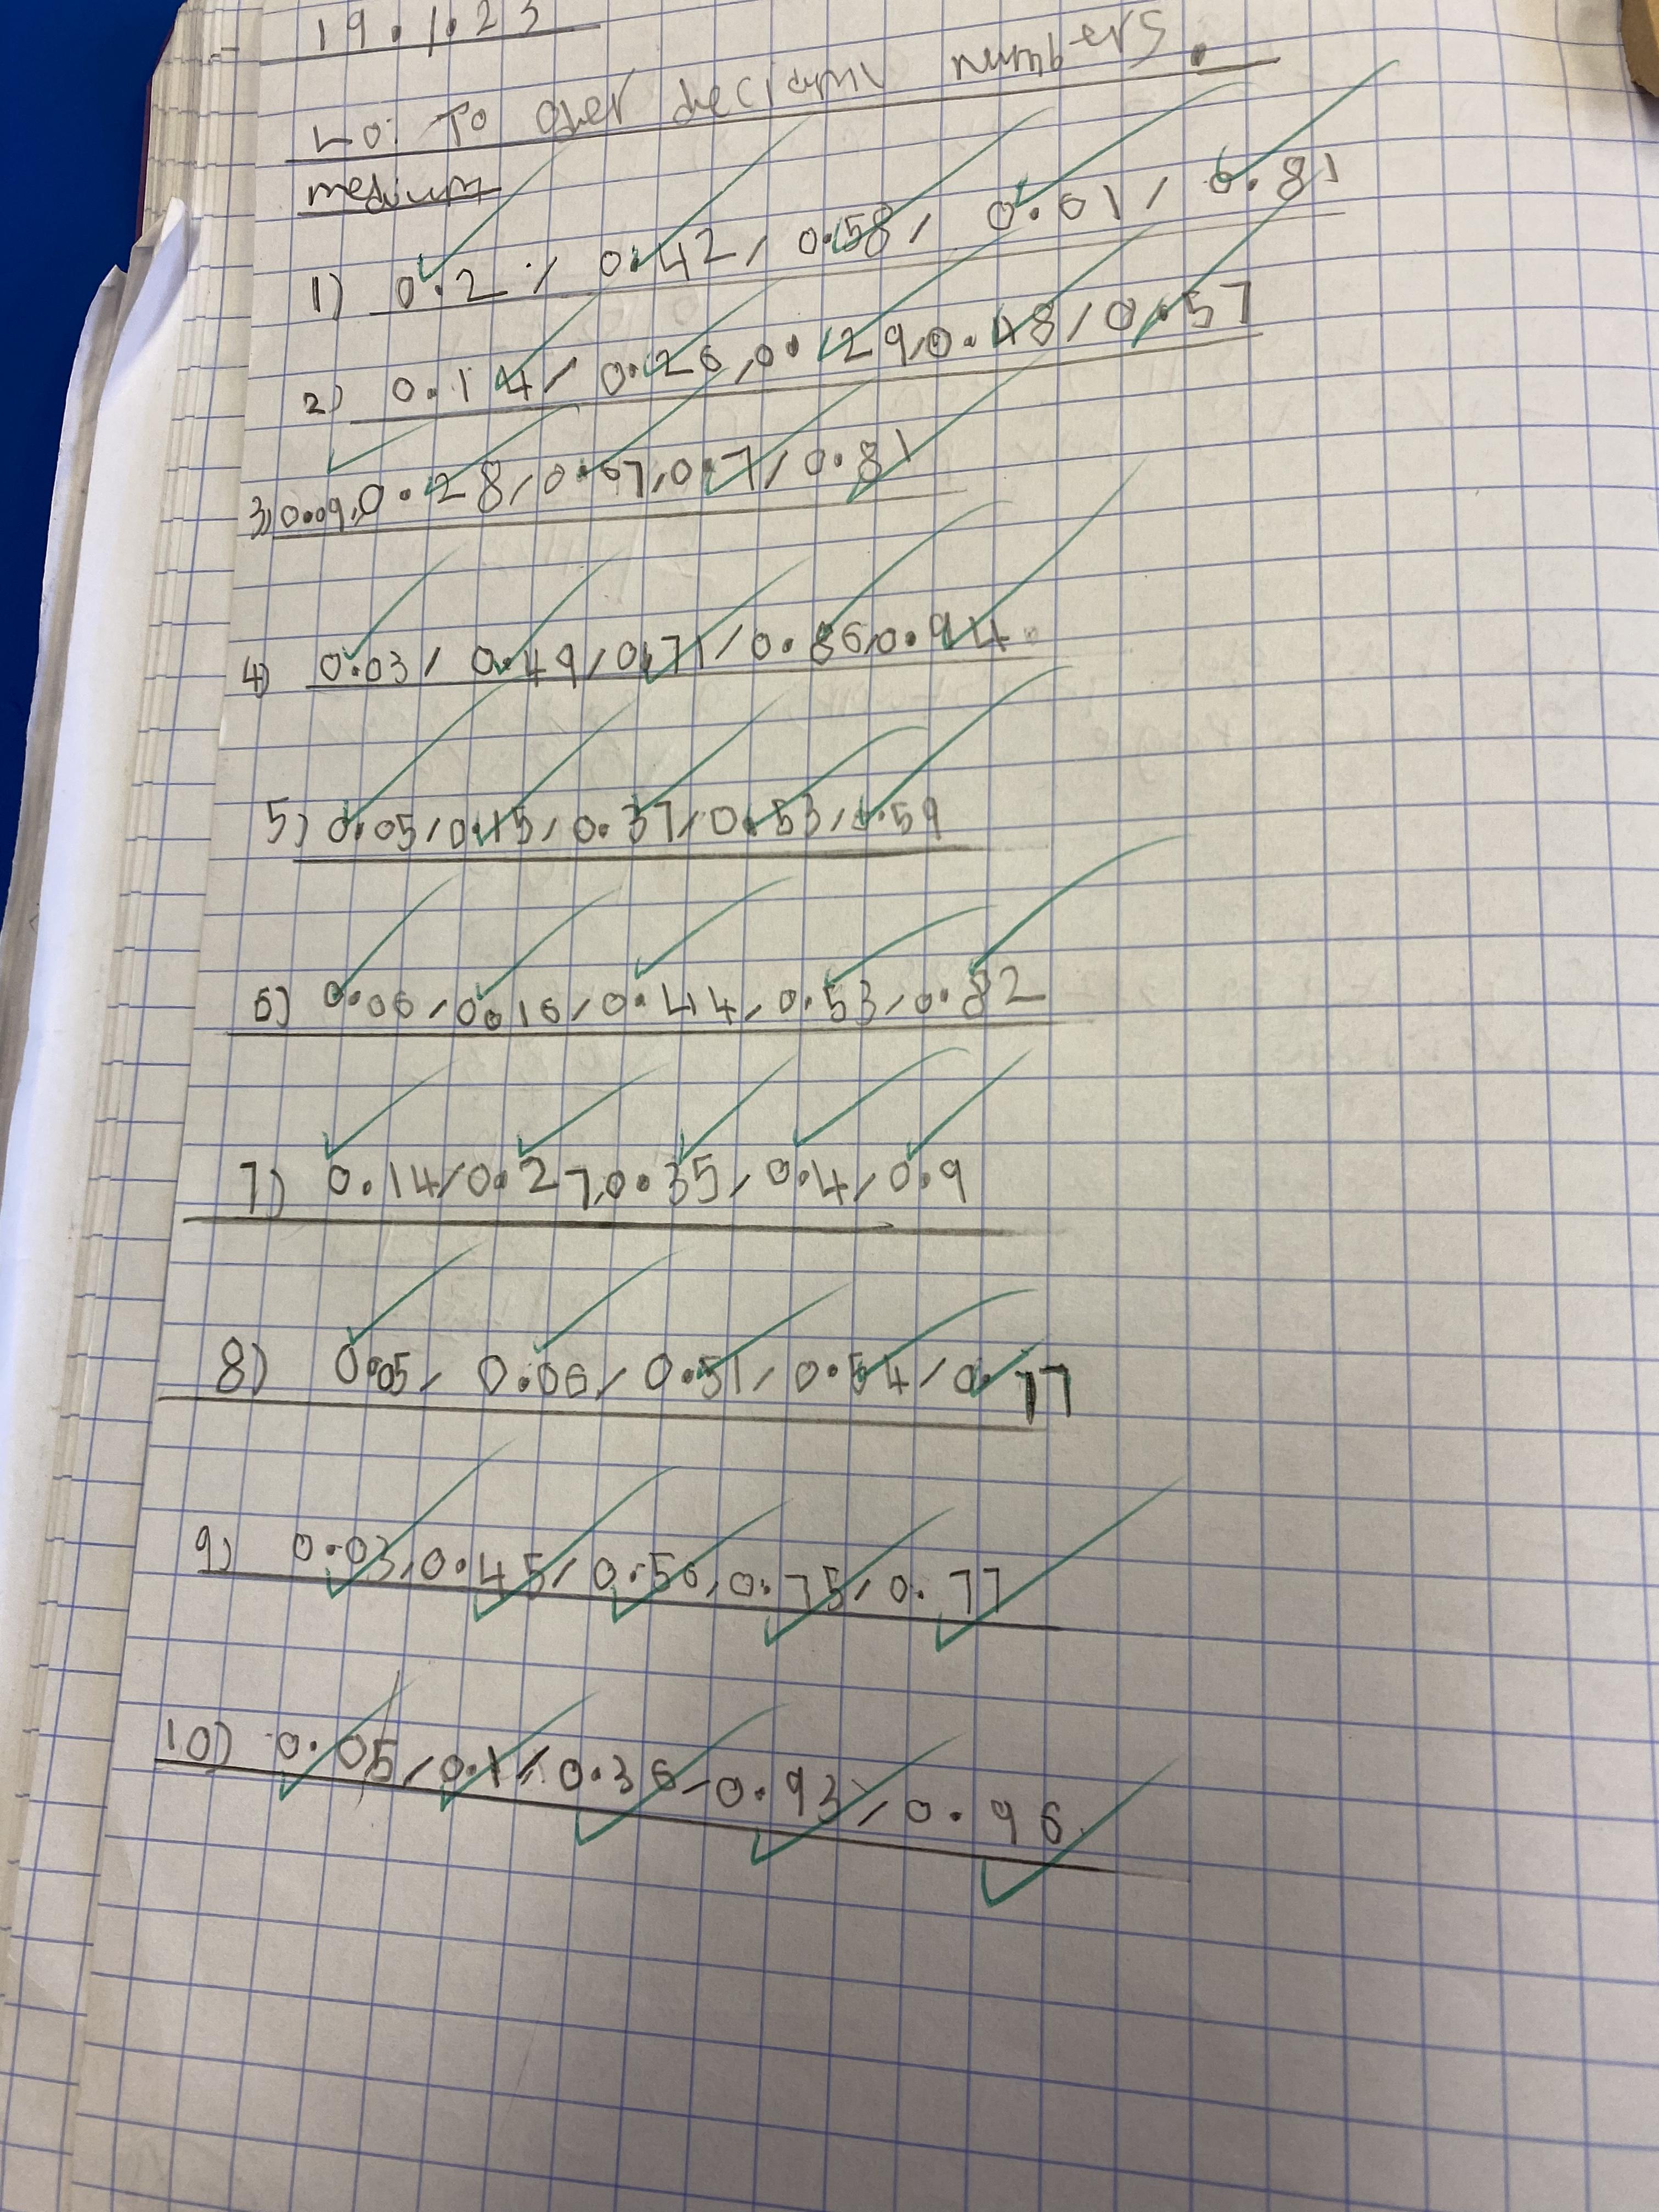 19.1.23
Lo: To oher deciaml numbers.
medium
1) 0.2, 0.42, 0.58, 0.61, 0.81
2) 0.14, 0.26, 0.29, 0.48, 0.57
3) 0.09, 0.28, 0.67, 0.7, 0.81
4) 0.03, 0.49, 0.71, 0.86, 0.94
5) 0.05, 0.15, 0.37, 0.53, 0.59
6) 0.06, 0.16, 0.44, 0.53, 0.82
7) 0.14, 0.27, 0.35, 0.4, 0.9
8) 0.05, 0.06, 0.51, 0.54, 0.77
9) 0.03, 0.45, 0.56, 0.75, 0.77
10) 0.05, 0.1, 0.36, 0.93, 0.96